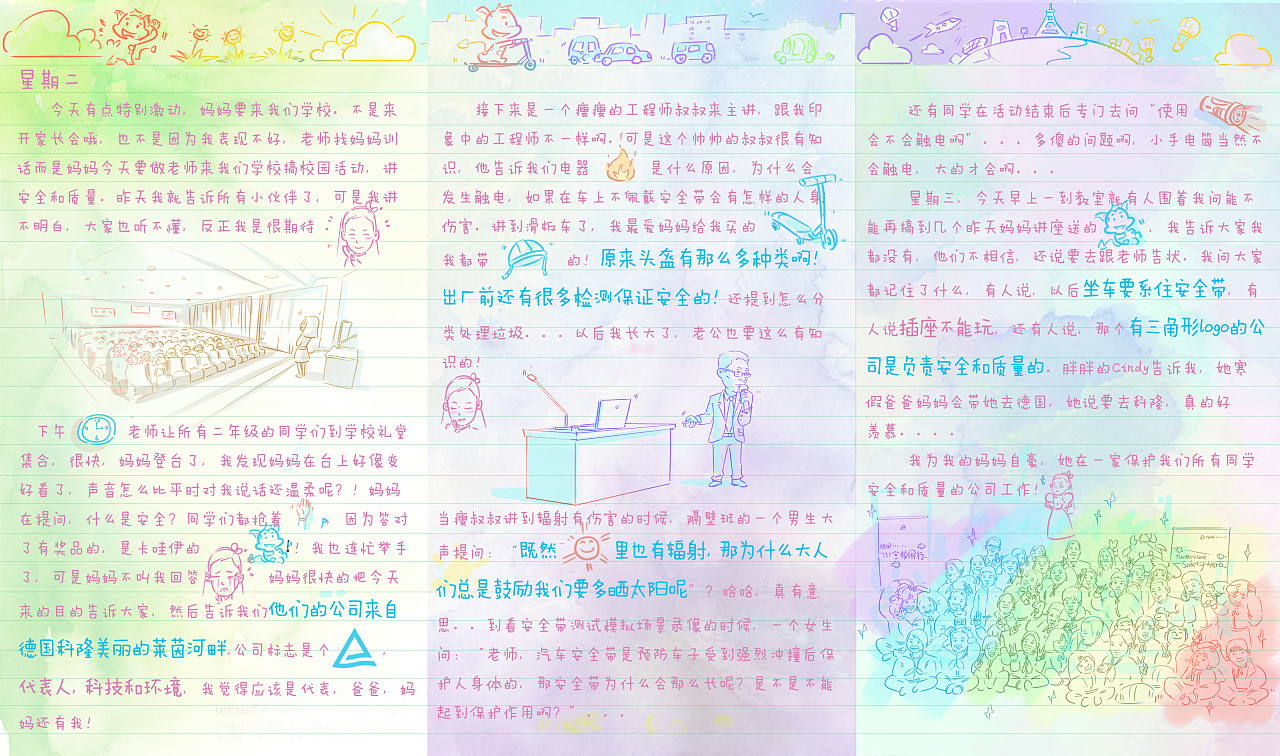 星期二
今天有点特别激动，妈妈要来我们学校。不是来
开家长会哦，也不是因为我表现不好，老师找妈妈训
话而是妈妈今天要做老师来我们学校搞校园活动，讲
安全和质量。昨天我就告诉所有小伙伴了，可是我讲
不明白，大家也听不懂，反正我是很期待
下午 老师让所有二年级的同学们到学校礼堂
集合，很快，妈妈登台了，我发现妈妈在台上好像变
好看了，声音怎么比平时对我说话还温柔呢？！妈妈
在提问，什么是安全？同学们都抢着 ，因为答对
了有奖品的，是卡哇伊的 ！我也连忙举手
了，可是妈妈不叫我回答 。妈妈很快的把今天
来的目的告诉大家，然后告诉我们他们的公司来自
德国科隆美丽的莱茵河畔,公司标志是个 ，
代表人，科技和环境，我觉得应该是代表，爸爸，妈
妈还有我！
接下来是一个瘦瘦的工程师叔叔来主讲，跟我印
象中的工程师不一样啊。可是这个帅帅的叔叔很有知
识，他告诉我们电器 是什么原因，为什么会
发生触电，如果在车上不佩戴安全带会有怎样的人身
伤害。讲到滑板车了，我最爱妈妈给我买的
我都带 的！原来头盔有那么多种类啊！
出厂前还有很多检测保证安全的！还提到怎么分
类处理垃圾...以后我长大了，老公也要这么有知
识的！
当瘦叔叔讲到辐射有伤害的时候，隔壁班的一个男生大
声提问：“既然 里也有辐射，那为什么大人
们总是鼓励我们要多晒太阳呢”？哈哈，真有意
思..到看安全带测试模拟场景录像的时候，一个女生
问：“老师，汽车安全带是预防车子受到强烈冲撞后保
护人身体的，那安全带为什么会那么长呢？是不是不能
起到保护作用啊？”....
还有同学在活动结束后专门去问“使用
会不会触电啊”...多傻的问题啊，小手电筒当然不
会触电，大的才会啊...
星期三，今天早上一到教室就有人围着我问能不
能再搞到几个昨天妈妈讲座送的 ，我告诉大家我
都没有，他们不相信，还说要去跟老师告状。我问大家
都记住了什么，有人说，以后坐车要系住安全带，有
人说插座不能玩，还有人说，那个有三角形logo的公
司是负责安全和质量的。胖胖的Cindy告诉我，她寒
假爸爸妈妈会带她去德国，她说要去科隆，真的好
羡慕....
我为我的妈妈自豪，她在一家保护我们所有同学
安全和质量的公司工作！